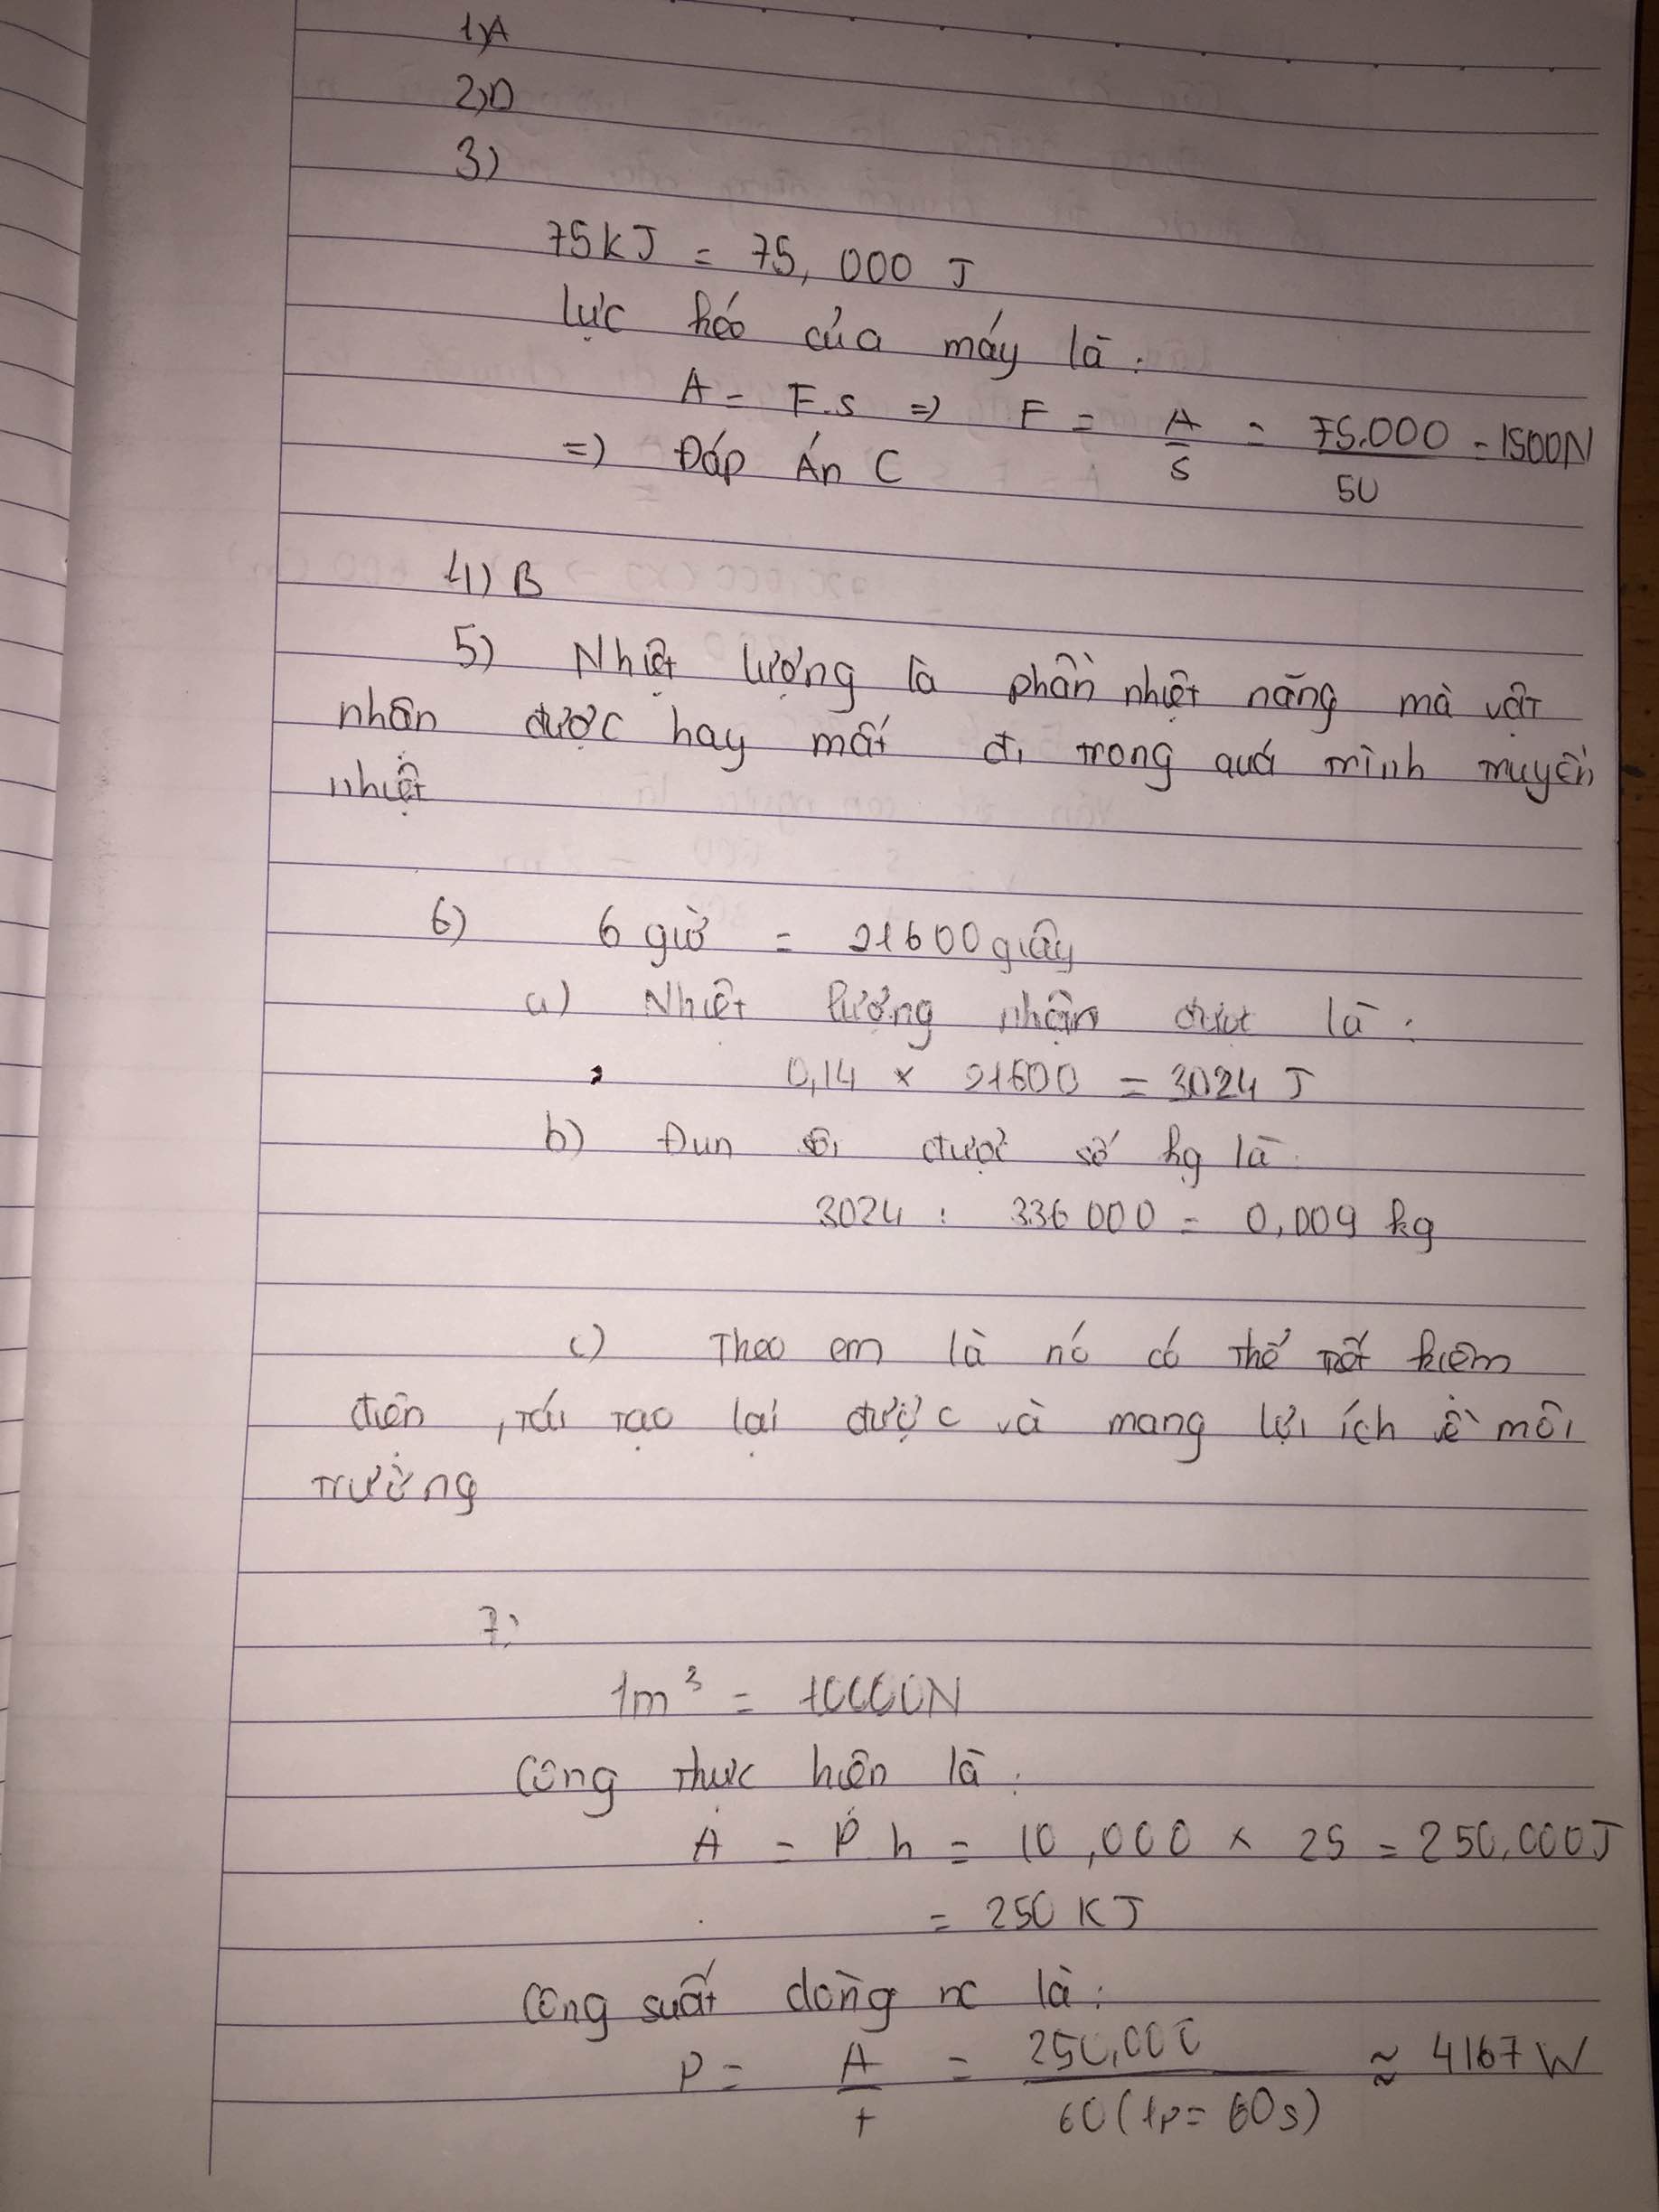 1) A
2) D
3)
75kJ = 75,000 J
lực kéo của máy là :
A = F.s => F = A/s = 75.000/50 = 1500N
=> Đáp Án C
4) B
5) Nhiệt lượng là phần nhiệt năng mà vật
nhận được hay mất đi trong quá trình truyền
nhiệt
6) 6 giờ = 21600 giây
a) Nhiệt lượng nhận được là :
0,14 x 21600 = 3024 J
b) Đun sôi được số kg là
3024 : 336 000 = 0,009 kg
c) Theo em là nó có thể tiết kiệm
điện , tái tạo lại được và mang lợi ích về môi
trường
7)
1m³ = 10000N
Công thực hiện là :
A = P.h = 10,000 x 25 = 250.000J
= 250 KJ
Công suất dòng nc là :
P = A/t = 250,000/60 (1p = 60s) ≈ 4167 W